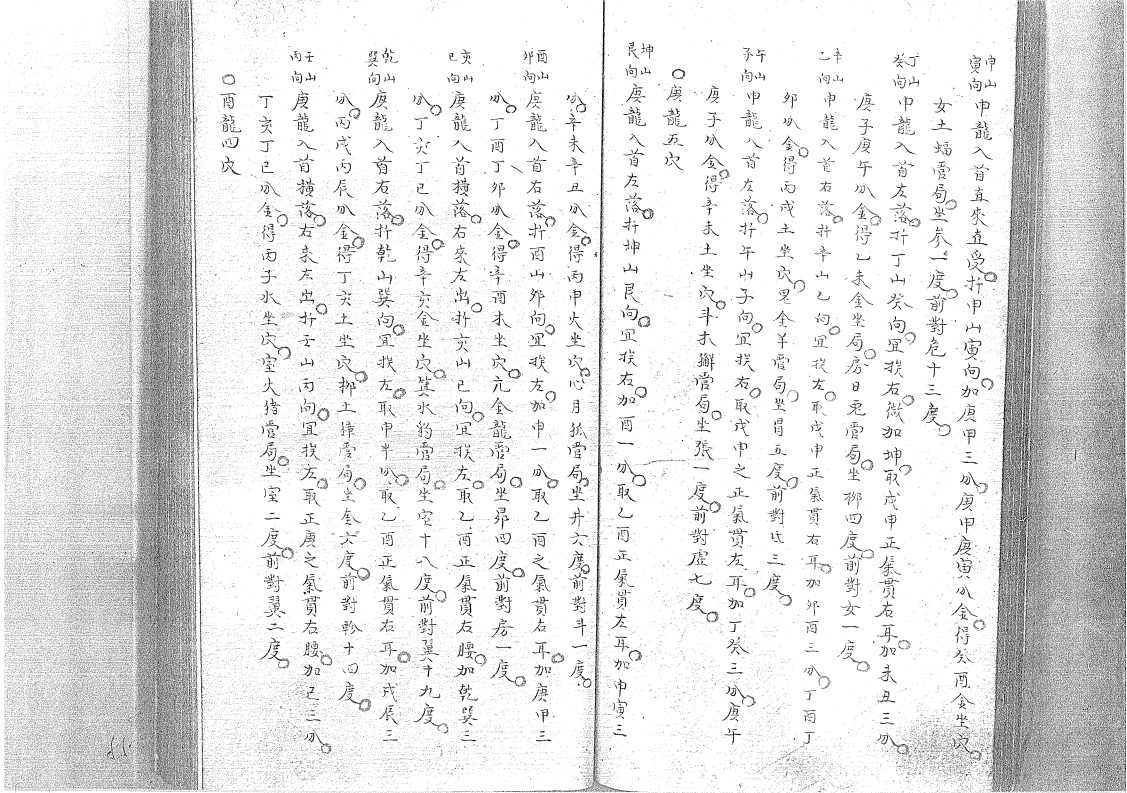 申山寅向申龍入首直來直受扦申山寅向加庚甲三分庚甲庚寅分金得癸酉金坐穴
女土蝠管局坐參一度前對危十三度
丁山癸向申龍入首左落扦丁山癸向宜挨右微加坤取戊申正氣貫右耳加未丑三分
庚子庚午分金得乙未金坐局房日兎管局坐柳四度前對女一度
辛山乙向申龍入首右落扦辛山乙向宜挨左取戊申正氣貫右耳加卯酉三分丁酉丁
卯分金得丙戌土坐穴鬼金羊管局坐胃五度前對氐三度
午山子向申龍入首左落扦午山子向宜挨右取戊申之正氣貫左耳加丁癸三分庚午
庚子分金得辛未土坐穴斗木獬管局坐張一度前對虛七度
○庚龍五穴
坤山艮向庚龍入首左落扦坤山艮向宜挨右加酉一分取乙酉正氣貫左耳加申寅三
分辛未辛丑分金得丙申火坐穴心月狐管局坐井六度前對斗一度
酉山卯向庚龍入首右落扦酉山卯向宜挨左加申一分取乙酉之氣貫右耳加庚甲三
分丁酉丁卯分金得辛酉木坐穴亢金龍管局坐昴四度前對房一度
亥山巳向庚龍入首橫落右來左出扦亥山巳向宜挨左取乙酉正氣貫右腰加乾巽三
分丁亥丁巳分金得辛亥金坐穴箕水豹管局坐室十八度前對翼十九度
乾山巽向庚龍入首右落扦乾山巽向宜挨左取申半分取乙酉正氣貫右耳加戌辰三
分丙戌丙辰分金得丁亥土坐穴柳土獐管局坐奎六度前對軫十四度
壬山丙向庚龍入首橫落右來左出扦壬山丙向宜挨左取正庚之氣貫右腰加巳三分
丁亥丁巳分金得丙子水坐穴室火猪管局坐室二度前對翼二度
○酉龍四穴